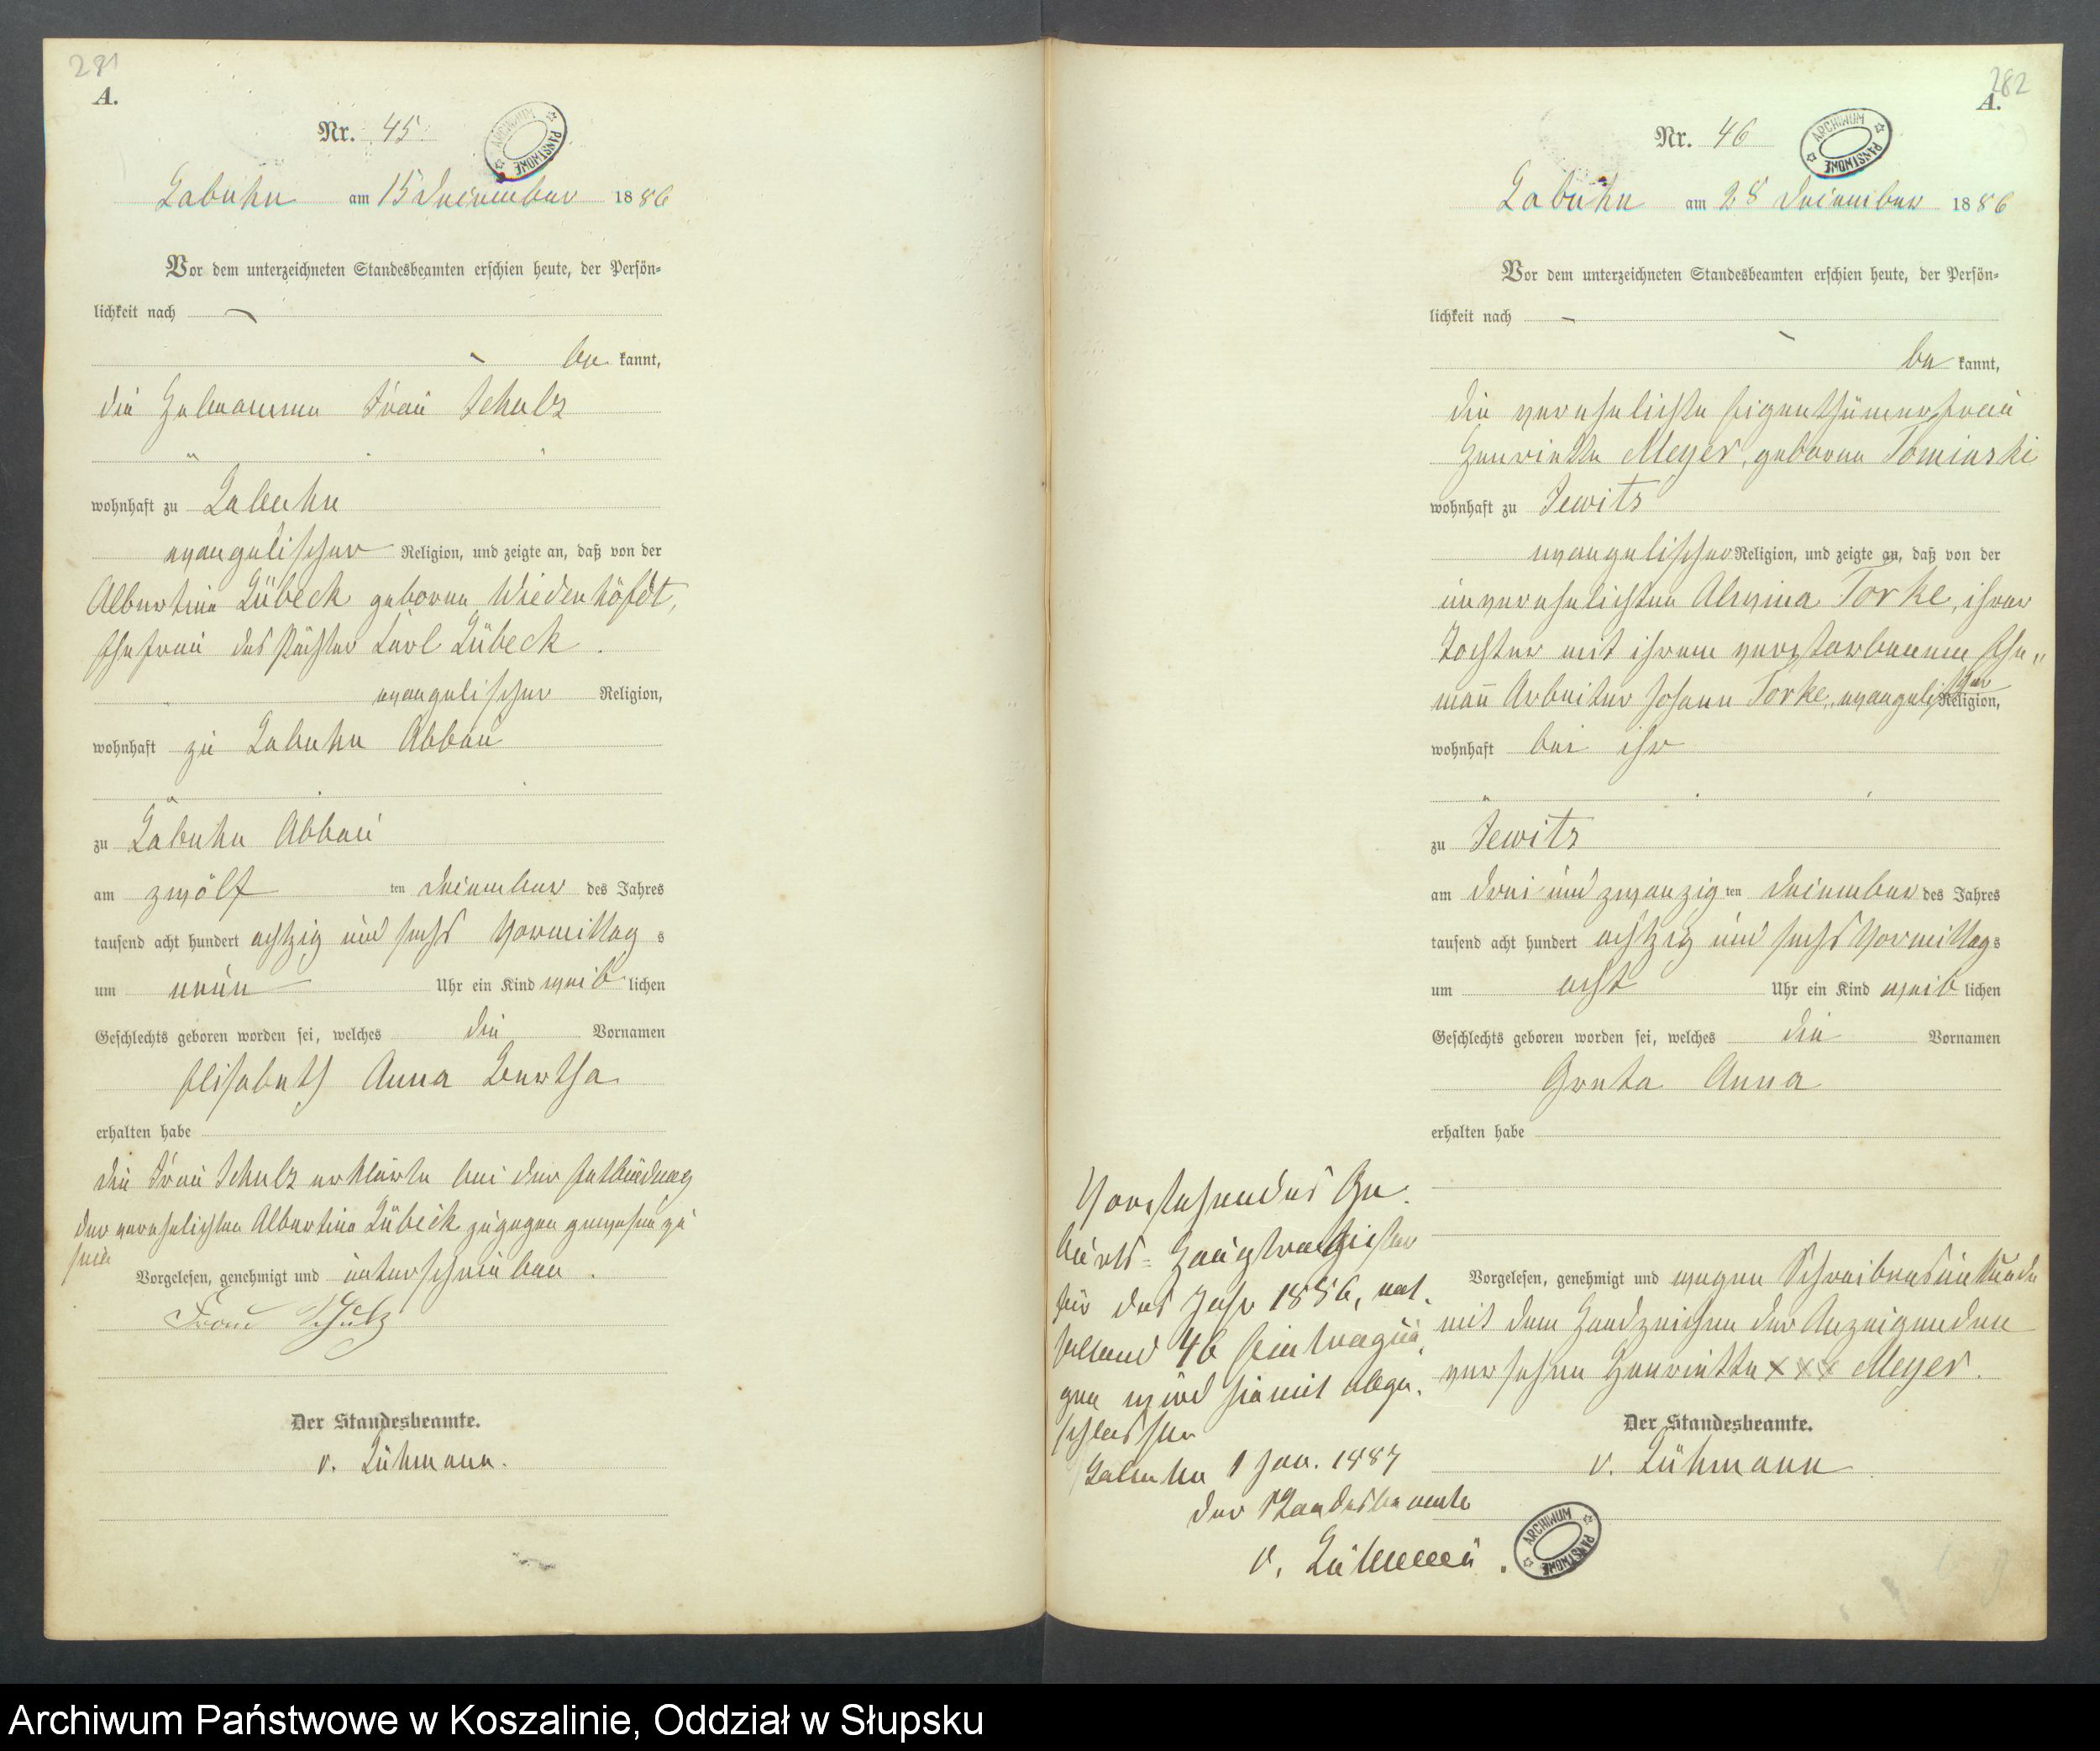 281
A.
Nr. 45
ARCHIWUM PAŃSTWOWE
Labuhn am 15 December 1886
Vor dem unterzeichneten Standesbeamten erschien heute, der Persön-
lichkeit nach
be kannt,
die Hebamme Frau Schulz
wohnhaft zu Labuhn
evangelischer Religion, und zeigte an, daß von der
Albertine Lübeck geborne Wiedenhöfdt,
Ehefrau des Pächter Carl Lübeck.
evangelischer Religion,
wohnhaft zu Labuhn Abbau
zu Labuhn Abbau
am zwölf ten December des Jahres
tausend acht hundert achtzig und sechs Vormittag s
um neun Uhr ein Kind weib lichen
Geschlechts geboren worden sei, welches die Vornamen
Elisabeth Anna Bertha
erhalten habe
die Frau Schulz erklärte bei der Entbindung
der verehelichten Albertine Lübeck zugegen gewesen zu
sein
Vorgelesen, genehmigt und unterschrieben.
Frau Schulz
Der Standesbeamte.
v. Lühmann.
282
A.
Nr. 46
ARCHIWUM PAŃSTWOWE
Labuhn am 28 December 1886
Vor dem unterzeichneten Standesbeamten erschien heute, der Persön-
lichkeit nach
be kannt,
die verehelichte Eigenthümerfrau
Henriette Meyer, geborne Tominski
wohnhaft zu Jewitz
evangelischer Religion, und zeigte an, daß von der
unverehelichten Alwina Torke, ihrer
Tochter mit ihrem verstorbenen Ehe"
mann Arbeiter Johann Torke, evangelischer Religion,
wohnhaft bei ihr
zu Jewitz
am drei und zwanzig ten December des Jahres
tausend acht hundert achtzig und sechs Vormittags
um acht Uhr ein Kind weib lichen
Geschlechts geboren worden sei, welches die Vornamen
Greta Anna
erhalten habe
Vorgelesen, genehmigt und wegen Schreibensunkunde
mit dem Handzeichen der Anzeigenden
versehen Henriette xxx Meyer.
Der Standesbeamte.
v. Lühmann
Vorstehendes Ge-
burts-Hauptregister
für das Jahr 1886, ent-
haltend 46 Eintragun-
gen wird hiermit abge-
schlossen
Labuhn 1 Jan. 1887
der Standesbeamte
v. Lühmann.
ARCHIWUM PAŃSTWOWE
Archiwum Państwowe w Koszalinie, Oddział w Słupsku